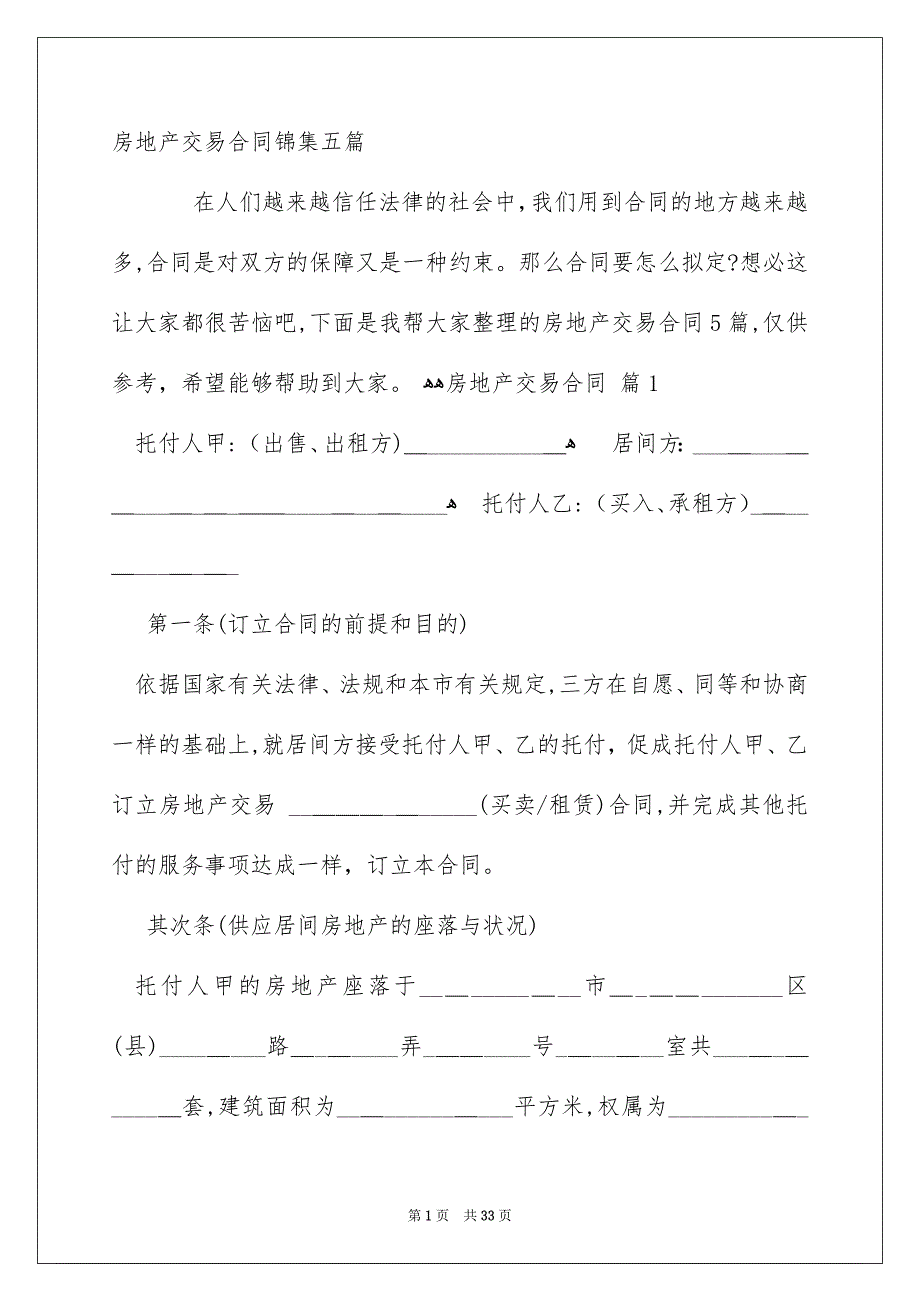 房地产交易合同锦集五篇
在人们越来越信任法律的社会中,我们用到合同的地方越来越
多,合同是对双方的保障又是一种约束。那么合同要怎么拟定?想必这
让大家都很苦恼吧,下面是我帮大家整理的房地产交易合同5篇,仅供
参考，希望能够帮助到大家。 ﻫﻫ房地产交易合同 篇1
托付人甲:（出售、出租方)______________ﻫ 居间方：__________
_____________________________ﻫ 托付人乙:（买入、承租方）_____
___________
第一条(订立合同的前提和目的)
依据国家有关法律、法规和本市有关规定,三方在自愿、同等和协商
一样的基础上,就居间方接受托付人甲、乙的托付，促成托付人甲、乙
订立房地产交易 ________________(买卖/租赁)合同,并完成其他托
付的服务事项达成一样，订立本合同。
其次条(供应居间房地产的座落与状况)
托付人甲的房地产座落于______________市_______________区
(县)_________路_________弄_________号_________室共________
______套,建筑面积为_______________平方米,权属为____________
第 1 页 共 33 页